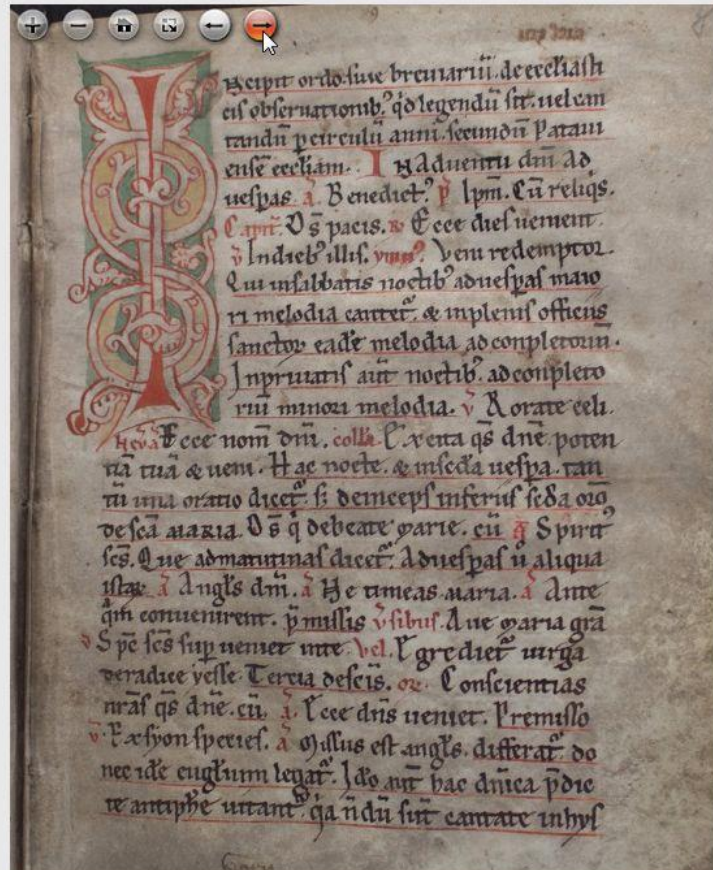 Incipit ordo siue breuiariū. de eccłiasti
cis obseruationib᷒. qd̄ legendū sit. uel can
tandū p̱ circulū anni. secundū Pataui
ensē eccłiam. IN aduentu dn̄i ad
uesp̱as. a᷒. Benedict᷒. p᷒. Ipm̄. Cū reliq̇s.
Capit̄. D̄s pacis. ꝶ Ecce dies uenient.
v̇ In dieb᷒ illis. ymn᷒. Veni redemptor.
Qui in sabbatis noctib᷒ ad uesp̱as maio
ri melodia cantet᷒. & in plenis officiis
sanctoꝝ eadē melodia ad conpletoriū.
In priuatis aūt noctib᷒. ad conpleto
riū minori melodia. v̇ Rorate celi.
Ecce nom̄ dn̄i. coll̄a. Excita qs̄ dn̄e. poten
tiā tuā & ueni. Hac nocte. & in sc̄da uesp̱a. tan
tū una oratio dicet᷒. s; deinceps inferius sc̄da or̄o
de sc̄a MARIA. D̄s q̇ de beate marie. cū a᷒ Spirit᷒
sc̄s. Que ad matutinas dicet᷒. Ad uesp̱as ū aliqua
istaꝝ a᷒ Angls̄ dn̄i. a᷒ Ne timeas maria. a᷒ Ante
qm̄ conuenirent. p̄missis v̇sibus. Aue maria grā
v̇ Sp̄c sc̄s sup̱ueniet in te. Vel. Egrediet᷒ uirga
de radice yesse. Tercia de sc̄is. oꝝ. Conscientias
nr̄as qs̄ dn̄e. cū. a᷒. Ecce dn̄s ueniet. Premisso
v̇. Ex syon species. a᷒ Missus est angls̄. differat᷒. do
nec idē euglīum legat᷒. Ideo aūt hac dn̄ica p̄dic
te antiphe uitant᷒. q̇a nōdū sūt cantate in hys